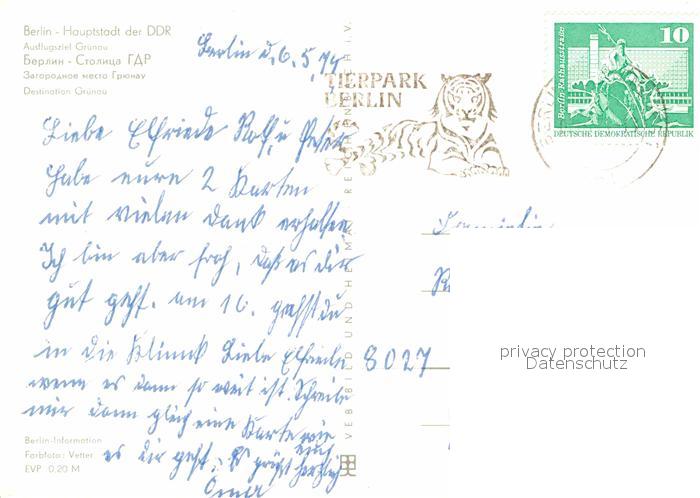 Berlin - Hauptstadt der DDR
Ausflugsziel Grünau
Берлин - Столица ГДР
Загородное место Грюнау
Destination Grünau
Berlin d. 6.5.74
TIERPARK
BERLIN
10
Berlin-Rathausstraße
DEUTSCHE DEMOKRATISCHE REPUBLIK
Liebe Elfriede Rolf u Peter
habe eure 2 Karten
mit vielen dank erhalten
Ich bin aber froh, daß es dir
gut geht. am 10. gehst du
in die Klinik Liebe Elfriede
wenn es dann so weit ist. Schreibe
mir dann gleich eine Karte wie
es dir geht. Es grüßt euch herzlich
Oma
Familie
8027
VEB BILD UND HEIMAT
privacy protection
Datenschutz
Berlin-Information
Farbfoto: Vetter
EVP 0.20 M